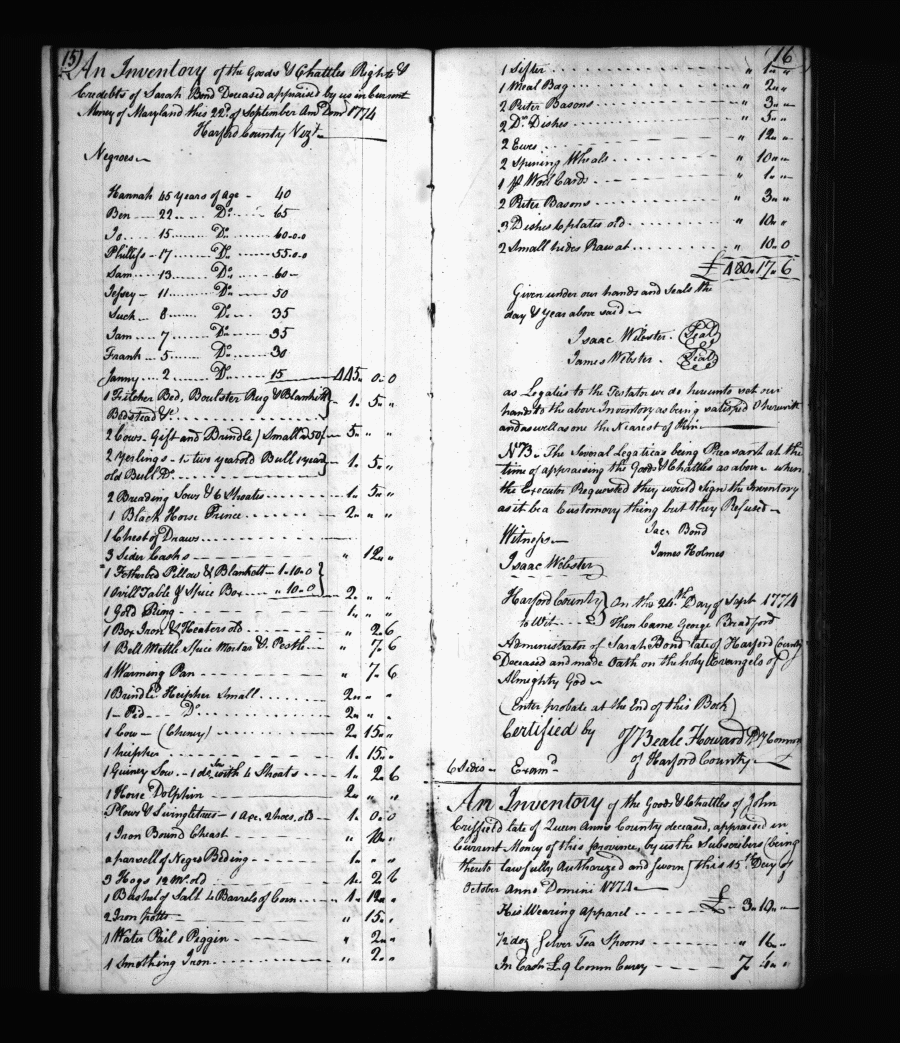 15)
An Inventory of the Goods & Chattles Rights &
Credebts of Sarah Bond Deceased appraised by us in Current
Money of Maryland this 22d. of September Anno Dom 1774
Harford County Vizt.
Negroes
Hannah 45 years of age - 40
Ben 22 Do. 65
Jo 15 Do. 60..0.0
Phillis 17 Do. 55.0.0
Sam 13 Do. 60
Jefsey 11 Do. 50
Suck 8 Do. 35
Jam 7 Do. 35
Frank 5 Do. 30
Janny 2 Do. 15 445 0 0
1 Fether Bed, Boulster Rug & Blankitt
Bedstead &c. 1 5 "
2 Cows. Gift and Brindle / Small @ 50/ 5 " "
2 Yerlings - 1 two year old Bull 1 year
old Bull Do. 1 5 "
2 Breading Sows & 6 Shoates 1 5 "
1 Black Horse Prince 2 " "
1 Chest of Draws
3 Sider Casks " 12 "
1 Fetherbed Pillow & Blankett 1.10.0
1 Ovill Table & Spice Box " 10.0 2 " "
1 Gold Ring 1 " "
1 Box Iron & Heaters old " 2 6
1 Bell Mettle Spice Mortar & Pestle " 7 6
1 Warming Pan " 7 6
1 Brindle Heipher Small 2 " "
1 Red Do. 2 " "
1 Cow - (Cherrey) 2 15 "
1 heipher 1 15 "
1 Guiney Sow - 1 do. with 4 Shoats 1 2 6
1 Horse Dolphin 2 " "
Plows & Swingletrees - 1 Axe, 2 hoes, old 1 0 0
1 Iron Bound Cheast " 10 "
a parsell of Negro Beding 1 " "
3 Hogs 12 Mo. old 1 2 6
1 Bushel of Salt 4 Barrels of Corn 1 12 "
2 Iron potts " 15 "
1 Water Pail 1 Piggin " 2 "
1 Smothing Iron " 2 "
16
1 Sifter " 1 "
1 Meal Bag " 2 "
2 Puter Basons " 3 "
2 Do. Dishes " 5 "
2 Ewes " 12 "
2 Spining Wheals " 10 "
1 pr Wool Cards " 1 "
2 Puter Basons " 3 "
3 Dishes 6 plates old " 10 "
2 Small hides Raw at " 10 0
£480 17 6
Given under our hands and Seals the
day & Year above said
Isaac Webster. Seal
James Webster. Seal
as Legaties to the Testator we do hereunto set our
hands to the above Inventory as being satisfied therewith
and as well as one the Nearest of Kin
NB. The Several Legaties being Pheasant at the
time of appraising the Goods & Chattles as above when
the Executor Requested they would Sign the Inventory
as it be a Customory thing but they Refused
Witness Jac. Bond
James Holmes
Isaac Webster
Harford County } On the 24th. Day of Sept 1774
to Wit Then Came George Bradford
Administrator of Sarah Bond late of Harford County
Deceased and made Oath on the holy Evangels of
Almighty God
(Enter probate at the End of this Book)
Certified by J Beale Howard Dy Commr
of Harford County
6 Sides Examd.
An Inventory of the Goods & Chattles of John
late of Queen Anns County deceased, appraised in
Current Money of this province, by us the Subscribers (being
thereto lawfully Authorized and sworn) this 15th. Day of
October Anno Domini 1774
His Wearing Apparel £ 3 10
1/2 doz Silver Tea Spoons " 16 "
In Cash £9 Comm Curey 7 4 "